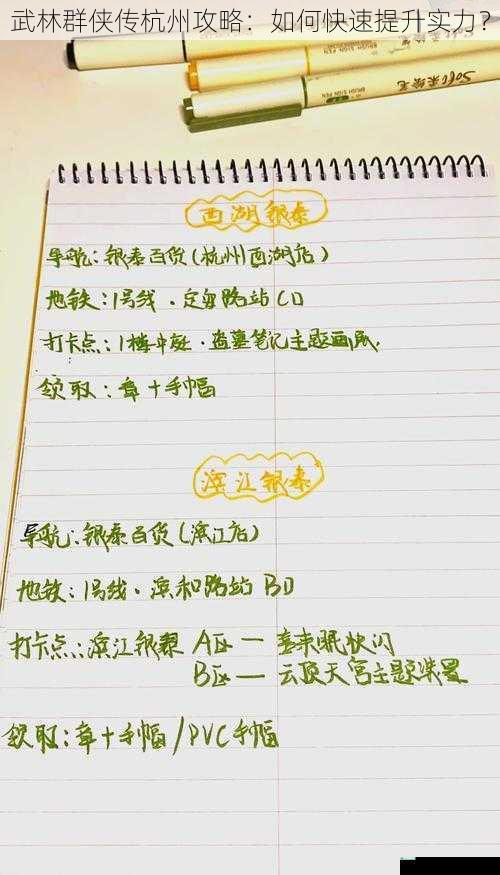 武林群侠传杭州攻略：如何快速提升实力？
Sofo 柔绘笔
BRUSH SIGN PEN
西湖银泰
导航：银泰百货(杭州西湖店)
地铁：1号线·定安路站CD
打卡点：1楼中庭·盗墓笔记主题画展.
领取：章+手幅
滨江银泰
导航：银泰百货(滨江店)
地铁：1号线·滨和路站 BD
打卡点：滨江银泰 A区—喜来眠快闪
B区—云顶天宫主题装置
领取：章+手幅/PVC手幅